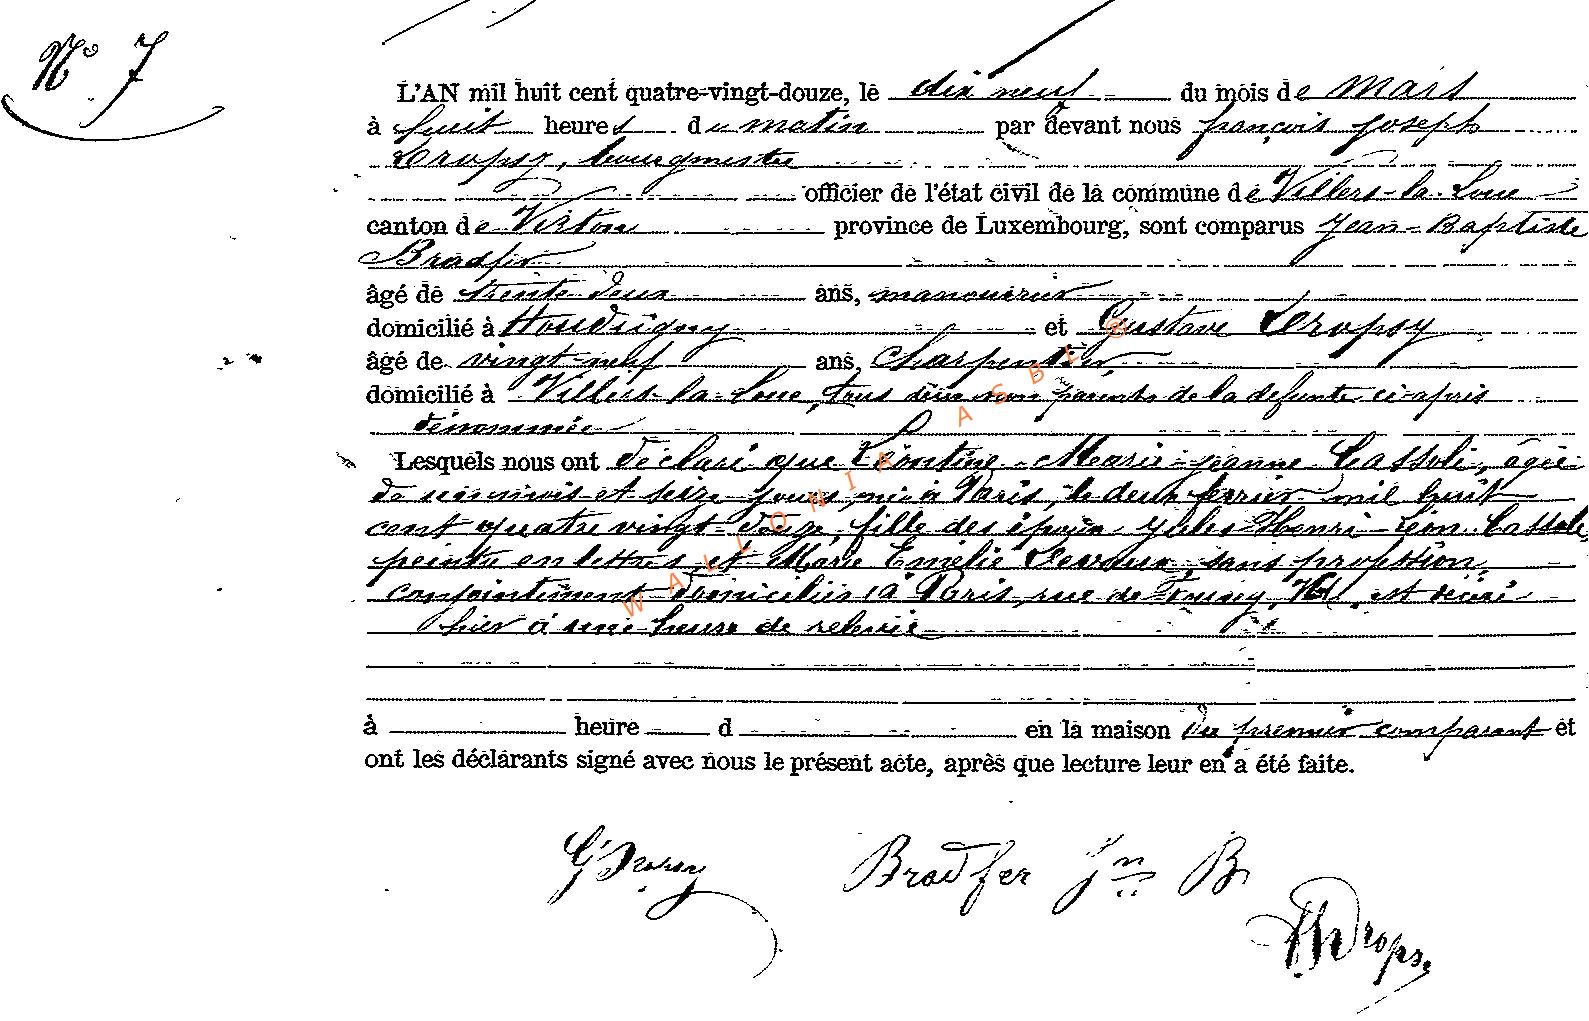 N° 7
L'AN mil huit cent quatre-vingt-douze, le dix neuf du mois de Mars
à huit heures du matin par devant nous françois Joseph
Dropsy, bourgmestre
officier de l'état civil de la commune de Villers-la-Loue
canton de Virton province de Luxembourg, sont comparus Jean-Baptiste
Bradfer
âgé de trente deux ans, manouvrier
domicilié à Houdrigny et Gustave Dropsy
âgé de vingt-neuf ans, Charpentier
domicilié à Villers-la-Loue, tous deux non parents de la défunte ci-après
dénommée
Lesquels nous ont déclaré que Léontine-Marie-Jeanne Cassoli, âgée
de mois et seize jours, née à Paris, le deux février mil huit
cent quatre vingt-douze, fille des époux Jules Henri-Léon Cassole,
peintre en lettres et Marie Emélie sans profession,
conjointement domiciliés à Paris, rue de est décédé
hier à une heure de relevée
à heure d en la maison du premier comparant et
ont les déclarants signé avec nous le présent acte, après que lecture leur en a été faite.
G Dropsy Bradfer Jn B
Dropsy
WALLONIA ASBL ©